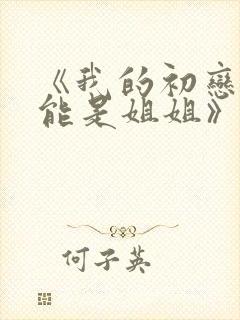 《我的初戀
能是姐姐》
何子英